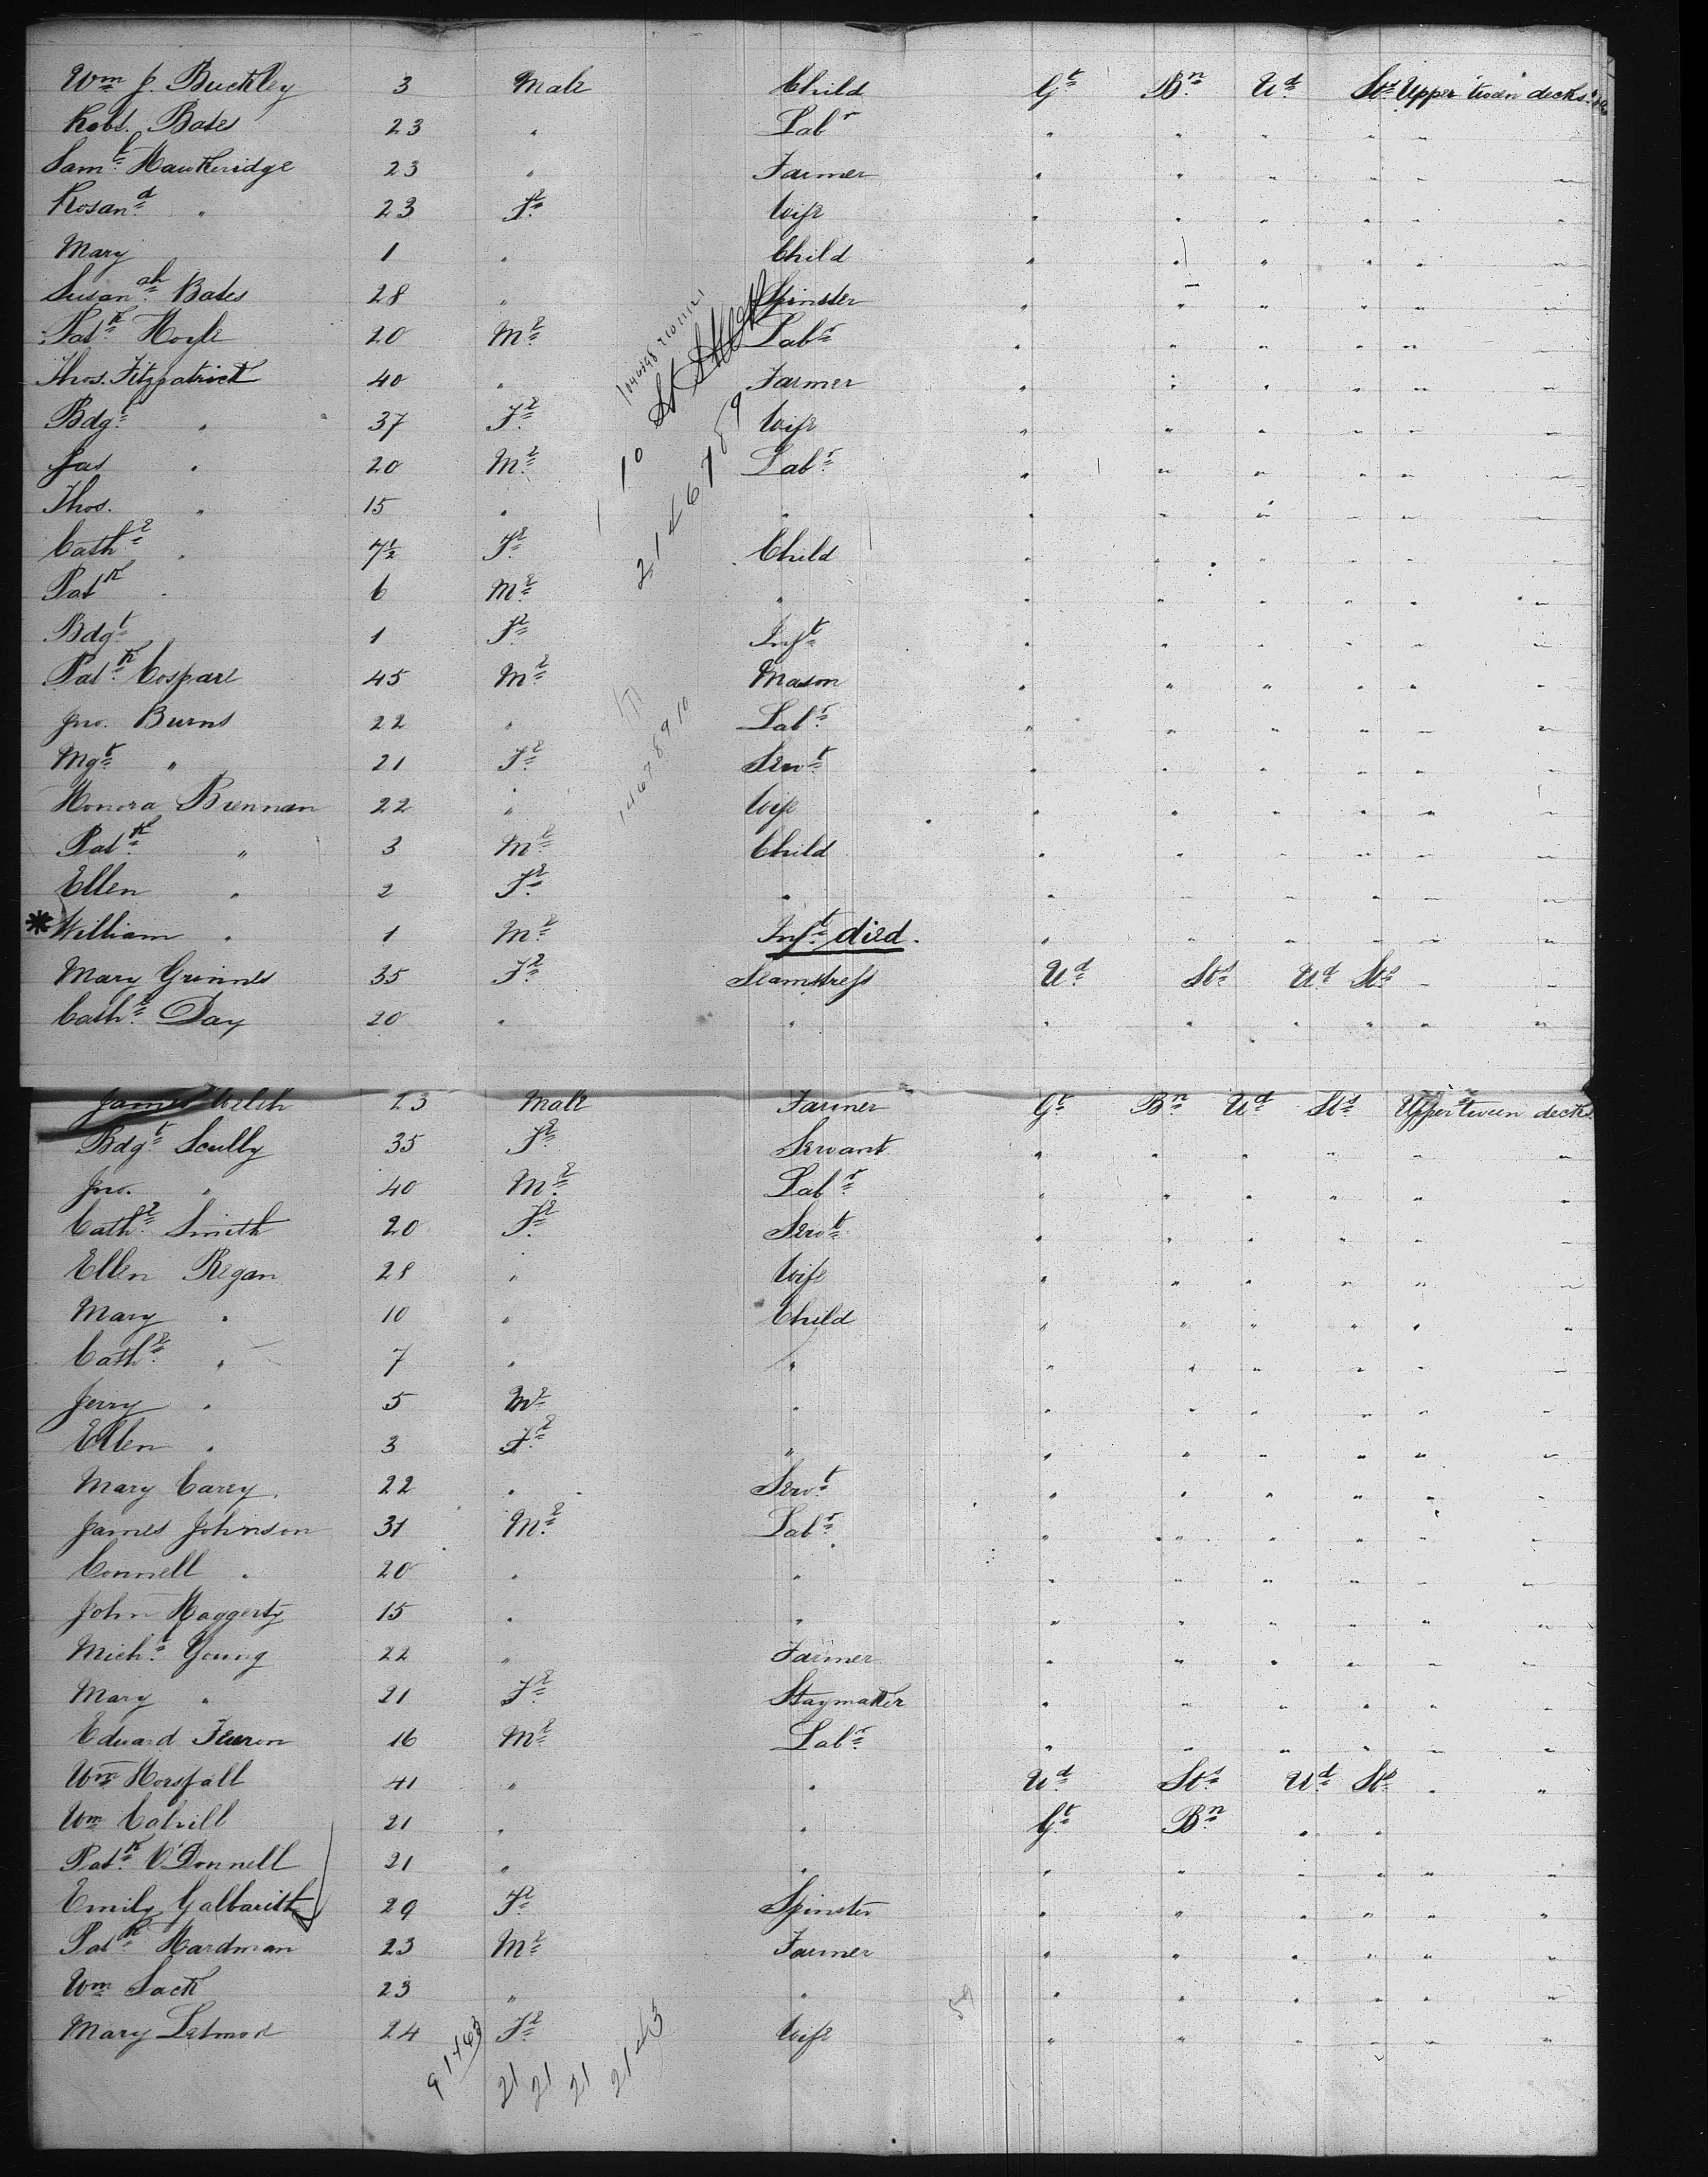 Wm J. Buckley 3 Male Child Gt Bn Ud Sts Upper 'tween decks
Robt. Bates 23 " Labr " " " " " "
Saml Hawkeridge 23 " Farmer " " " " " "
Rosand " 23 Fe Wife " " " " " "
Mary 1 " Child " " " " " "
Susanah Bates 28 " Spinster " " " " " "
Patk Hoyle 20 Me Labr " " " " " "
Thos. Fitzpatrick 40 " Farmer " " " " " "
Bdgt " 37 Fe Wife " " " " " "
Jas " 20 Me Labr " " " " " "
Thos. " 15 " " " " " " " "
Cathe " 7½ Fe Child " " " " " "
Patk " 6 Me " " " " " " "
Bdgt 1 Fe Inft " " " " " "
Patk Cospare 45 Me Mason " " " " " "
Jno. Burns 22 " Labr " " " " " "
Mgt " 21 Fe Servt " " " " " "
Honora Brennan 22 " Wife " " " " " "
Patk " 3 Me Child " " " " " "
Ellen " 2 Fe " " " " " " "
* William " 1 Me Inft died. " " " " " "
Mary Grinnes 35 Fe Seamstress Ud Sts Ud Sts " "
Cathe Day 20 " " " " " " " "
James Welch 23 Male Farmer Gt Bn Ud Sts Upper 'tween decks
Bdgt Scully 35 Fe Servant " " " " " "
Jno. " 40 Me Labr " " " " " "
Cathe Smith 20 Fe Servt " " " " " "
Ellen Regan 28 " Wife " " " " " "
Mary " 10 " Child " " " " " "
Cathe " 7 " " " " " " " "
Jerry " 5 Me " " " " " " "
Ellen " 3 Fe " " " " " " "
Mary Carey 22 " Servt " " " " " "
James Johnson 31 Me Labr " " " " " "
Connell " 20 " " " " " " " "
John Haggerty 15 " " " " " " " "
Michl Young 22 " Farmer " " " " " "
Mary " 21 Fe Staymaker " " " " " "
Edward Fearon 16 Me Labr " " " " " "
Wm Horsfall 41 " " Ud Sts Ud Sts " "
Wm Cahill 21 " " Gt Bn " "
Patk O'Donnell 21 " " " " " " " "
Emily Galbarith 29 Fe Spinster " " " " " "
Patk Hardman 23 Me Farmer " " " " " "
Wm Sack 23 " " " " " " " "
Mary Letmore 24 Fe Wife " " " " " "
21 21 21